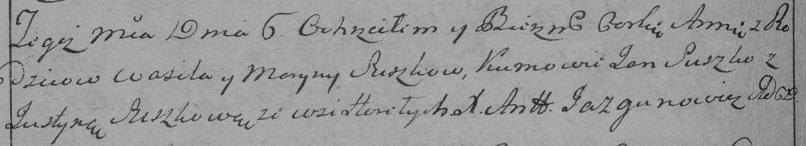 Tegoż Mca Dnia 6. Ochrzciłem y Bierzm Corkę Annę z Ro
dzicow Wasila y Maryny Suszkow, Kumowie Jan Suszko z
Justyną Suszkową ze wsi Horełych X. Antt. Jazgunowicz